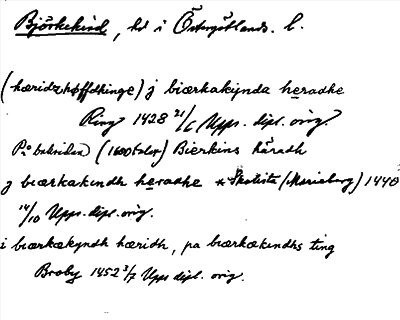 Björkekind, hd i Östergötlands. l.
(hæridzhøffdhinge) j biærkakynda heradhe
Ring 1428 21/6 Upps. dipl. orig.
På baksidan (1600talet) Bierkins häradh
j biærkakindh heradhe *Skolista (Marieberg) 1440
14/10 Upps. dipl. orig.
i biærkækyndh hæridh, pa biærkækindhs ting
Broby 1452 3/7 Upps dipl. orig.